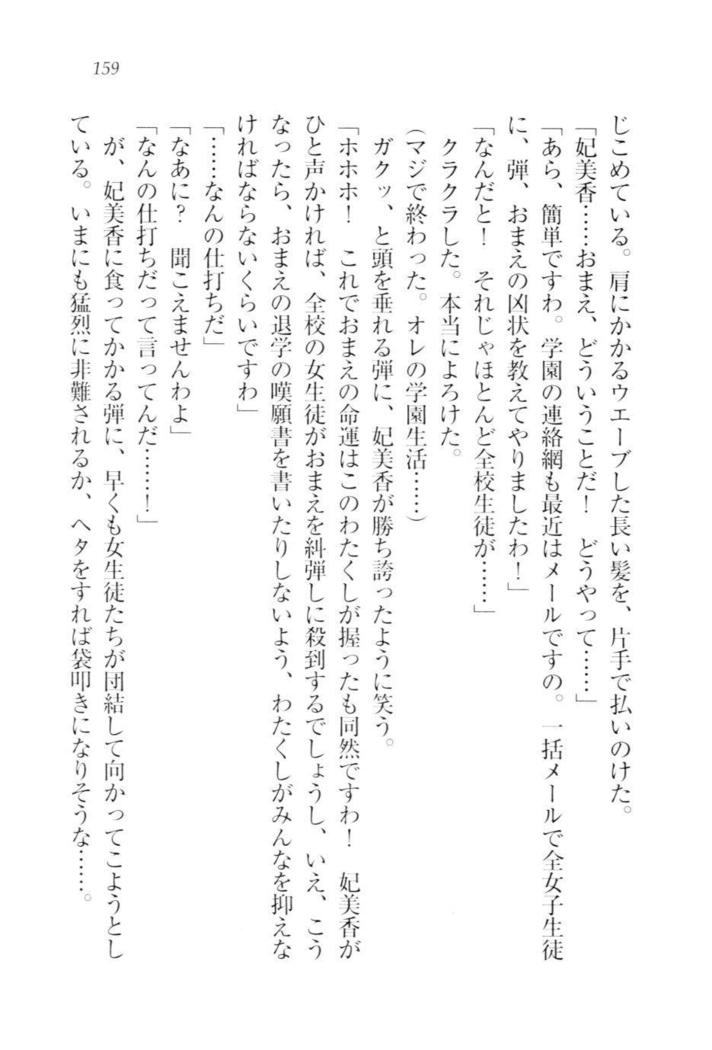 159
じこめている。肩にかかるウエーブした長い髪を、片手で払いのけた。
「妃美香……おまえ、どういうことだ！　どうやって……」
「あら、簡単ですわ。学園の連絡網も最近はメールですの。一括メールで全女子生徒
に、弾、おまえの凶状を教えてやりましたわ！」
「なんだと！　それじゃほとんど全校生徒が……」
クラクラした。本当によろけた。
(マジで終わった。オレの学園生活……)
ガクッ、と頭を垂れる弾に、妃美香が勝ち誇ったように笑う。
「ホホホ！　これでおまえの命運はこのわたくしが握ったも同然ですわ！　妃美香が
ひと声かければ、全校の女生徒がおまえを糾弾しに殺到するでしょうし、いえ、こう
なったら、おまえの退学の嘆願書を書いたりしないよう、わたくしがみんなを抑えな
ければならないくらいですわ」
「……なんの仕打ちだ」
「なあに？　聞こえませんわよ」
「なんの仕打ちだって言ってんだ……！」
が、妃美香に食ってかかる弾に、早くも女生徒たちが団結して向かってこようとし
ている。いまにも猛烈に非難されるか、ヘタをすれば袋叩きになりそうな……。